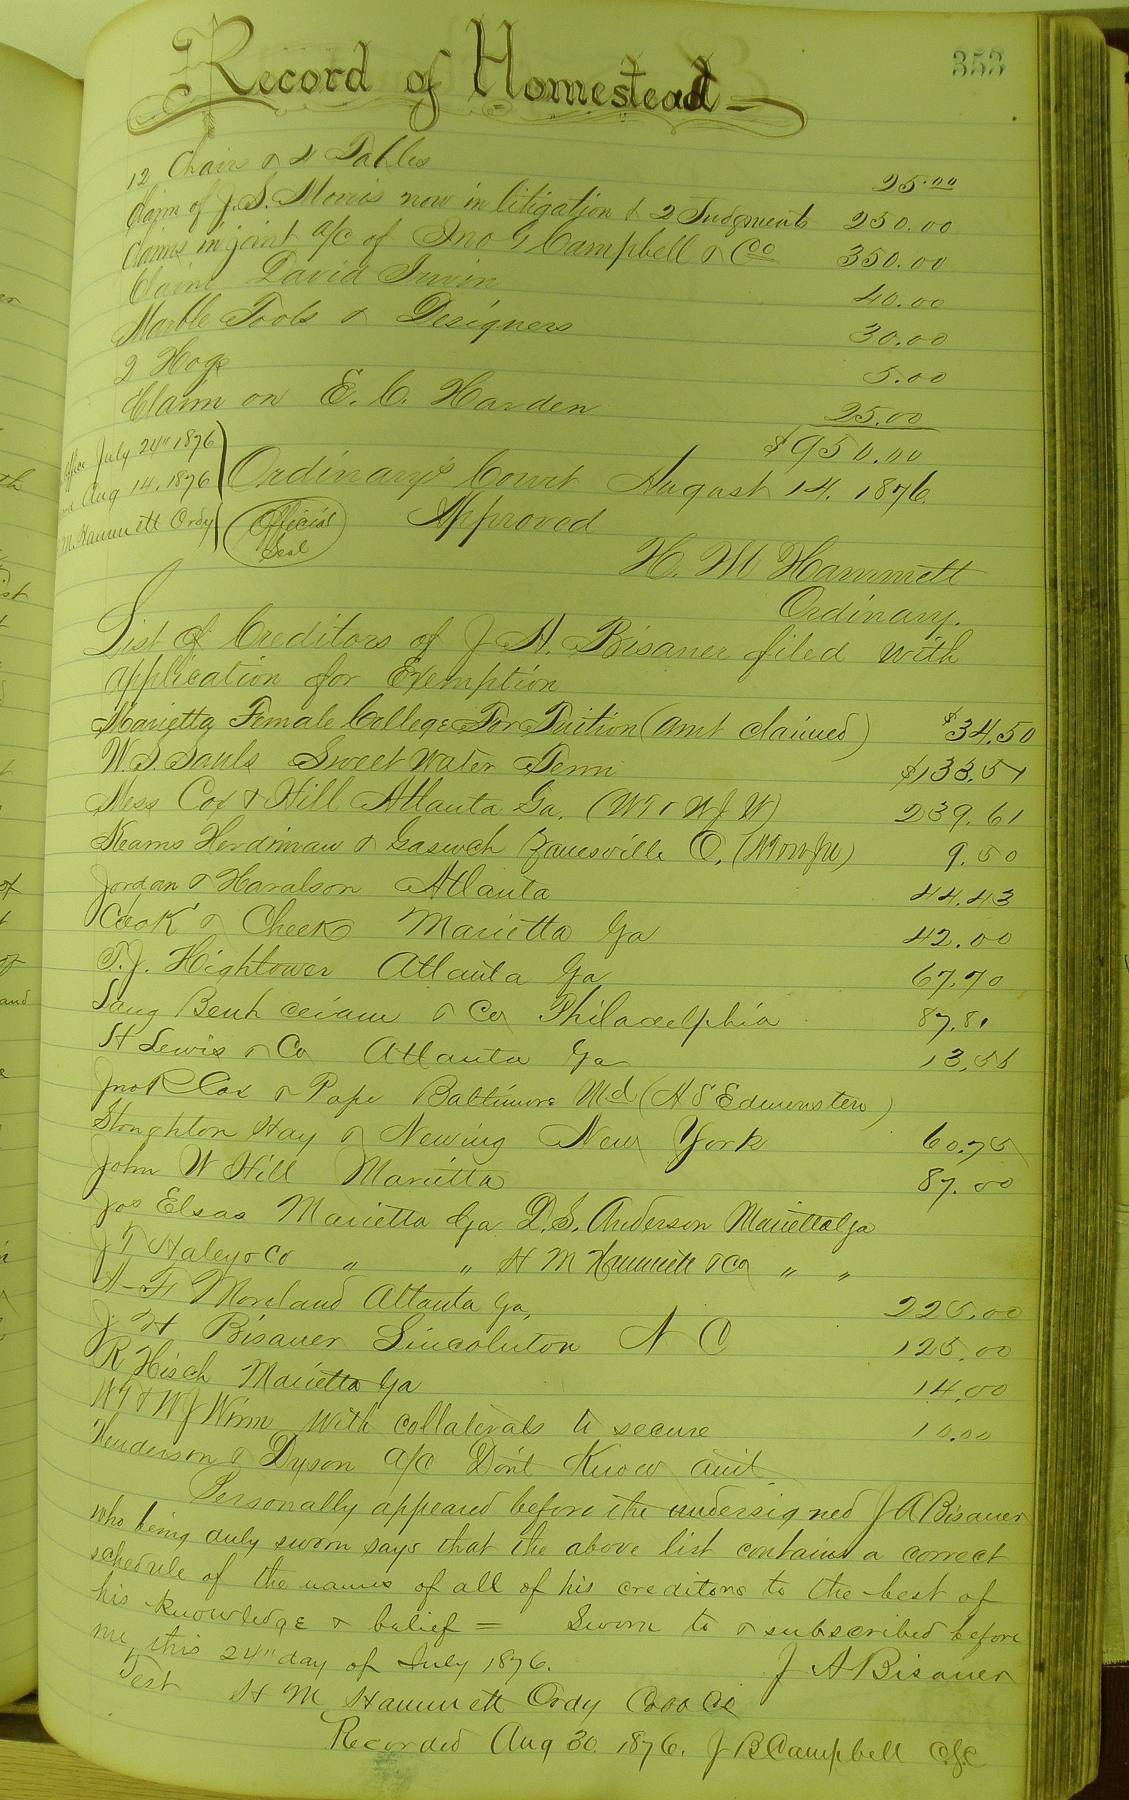 353
Record of Homestead
12 Chairs & 4 Tables 25.00
Claim of J. S. Morris now in litigation & 2 Judgments 250.00
Claims in joint a/c of Jno G Campbell & Co 350.00
Claim David Irwin 40.00
Marble Tools & Designers 30.00
2 Hogs 5.00
Claim on E. C. Harden 25.00
$950.00
office July 24th 1876
Aug 14, 1876
H. M. Hammett Ordy
Ordinary's Court August 14, 1876.
Official Seal
Approved
H. M. Hammett
Ordinary.
List of Creditors of J. A. Bisaner filed with
application for Exemption
Marietta Female College For Tuition (amt claimed) $34.50
W. S. Sauls Sweet Water Demi $133.51
Mess Cox & Hill Atlanta Ga. (WT & WJ W) 239.61
Kearns Herdiman & Zanesville O. 9.50
Jordan & Haralson Atlanta 44.43
Cook & Cheek Marietta Ga 42.00
T. J. Hightower Atlanta Ga 67.70
& Co Philadelphia 87.81
H Lewis & Co Atlanta Ga 13.55
Jno R Cox & Pope Baltimore Md (H S Edmonston)
Stoughton Hay & Newing New York 60.75
John W Hill Marietta 87.00
Jos Elsas Marietta Ga D. S. Anderson Marietta Ga
J T Haley & Co " " H M Hammett & Co " "
A. F. Moreland Atlanta Ga, 225.00
J H Bisaner Lincolnton N C 125.00
R Hisch Marietta Ga 14.00
WT & WJ Winn with collaterals to secure 10.00
Henderson & Dyson a/c Don't Know amt
Personally appeared before the undersigned J A Bisaner
who being duly sworn says that the above list contains a correct
schedule of the names of all of his creditors to the best of
his knowledge & belief = Sworn to & subscribed before
me this 24th day of July 1876. J A Bisaner
Test H M Hammett Ordy Cobb Co
Recorded Aug 30. 1876. J B Campbell C.S.C